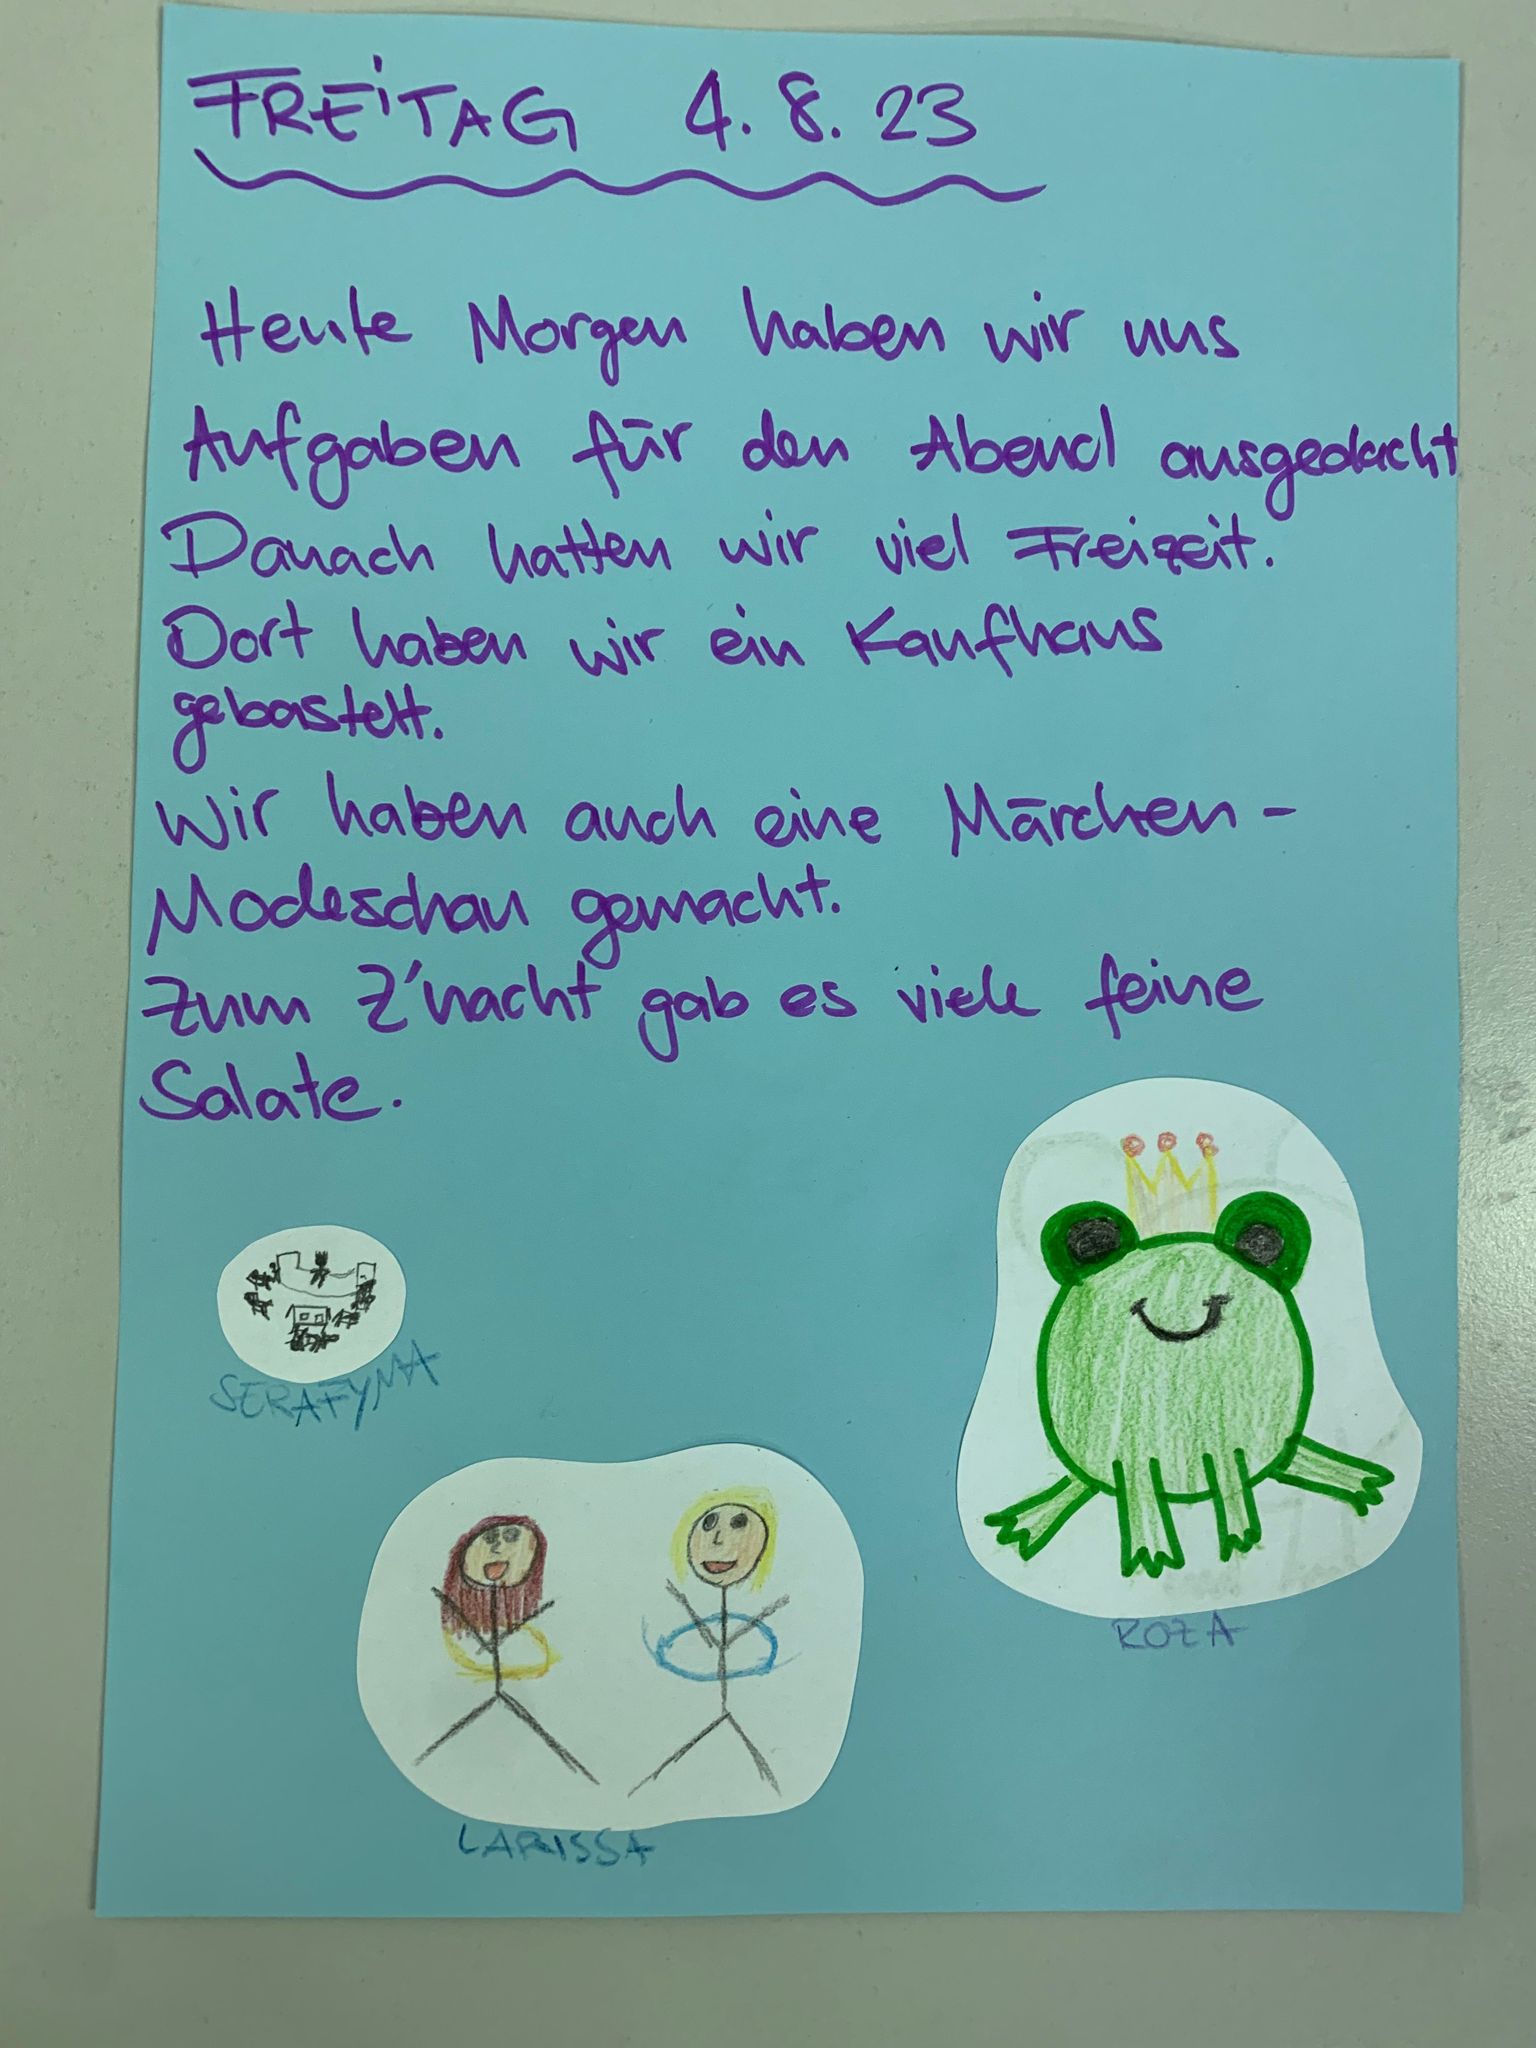 FREiTAG 4. 8. 23
Heute Morgen haben wir uns
Aufgaben für den Abend ausgedacht
Danach hatten wir viel Freizeit.
Dort haben wir ein Kaufhaus
gebastelt.
Wir haben auch eine Märchen-
Modeschau gemacht.
Zum Z'nacht gab es viele feine
Salate.
SERAFYMA
ROZA
LARISSA